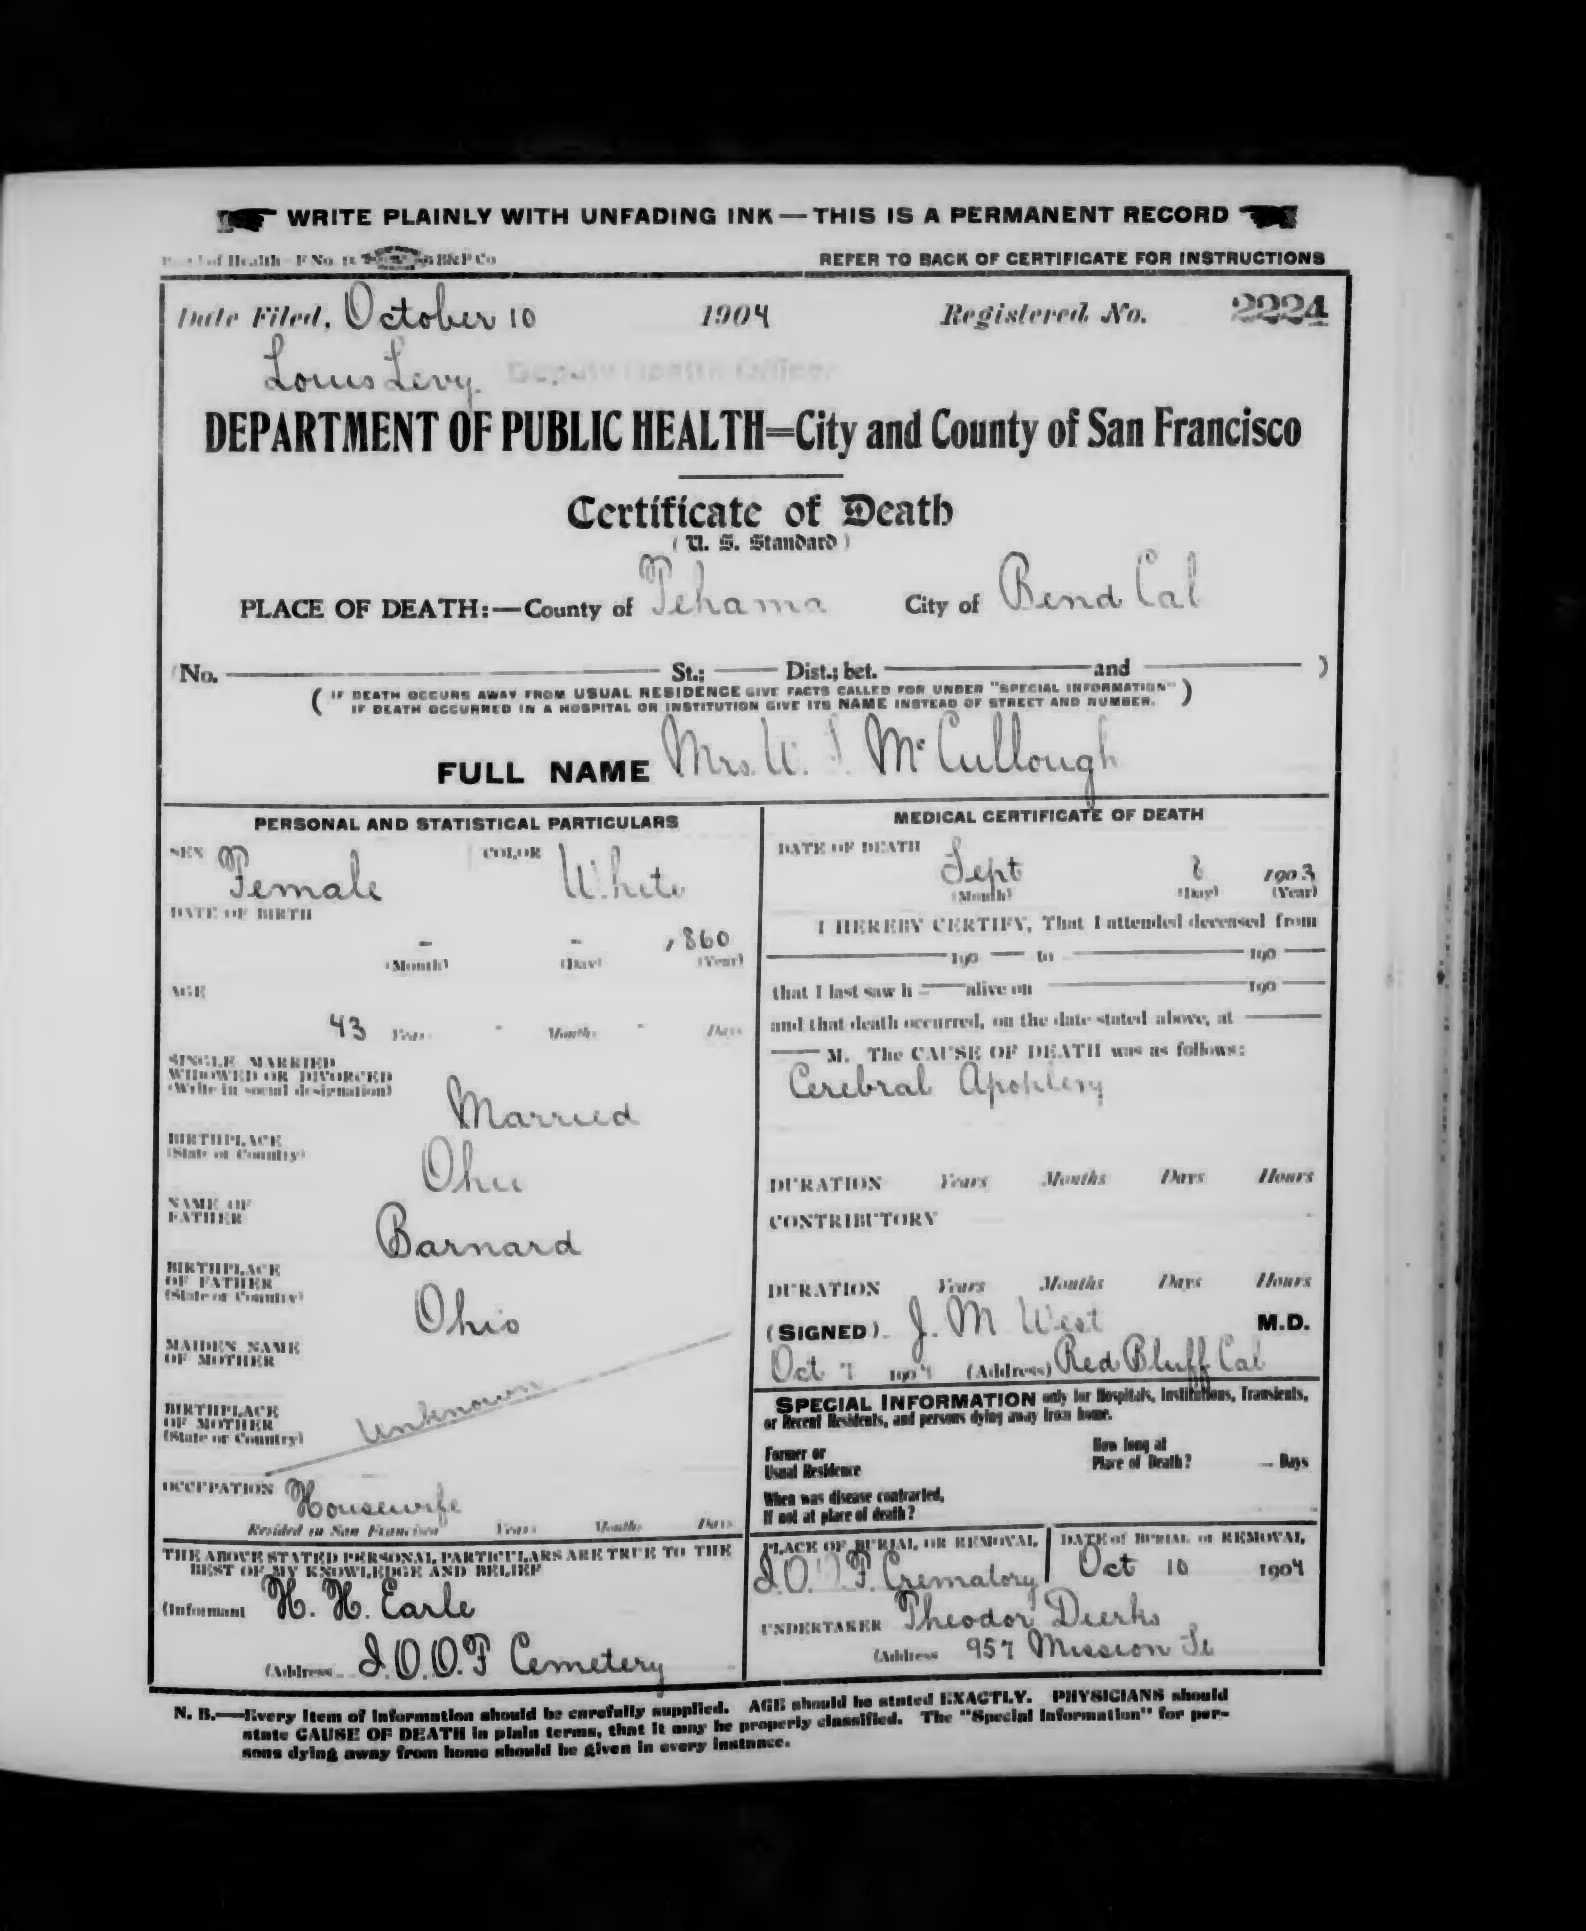 WRITE PLAINLY WITH UNFADING INK — THIS IS A PERMANENT RECORD
of Health F No. B&P Co
REFER TO BACK OF CERTIFICATE FOR INSTRUCTIONS
Date Filed, October 10 1904 Registered No. 2224
Louis Levy. Deputy Health Officer
DEPARTMENT OF PUBLIC HEALTH=City and County of San Francisco
Certificate of Death
(U. S. Standard)
PLACE OF DEATH:—County of Tehama City of Bend Cal
(No. St.; Dist.; bet. and )
(IF DEATH OCCURS AWAY FROM USUAL RESIDENCE GIVE FACTS CALLED FOR UNDER "SPECIAL INFORMATION"
IF DEATH OCCURRED IN A HOSPITAL OR INSTITUTION GIVE ITS NAME INSTEAD OF STREET AND NUMBER.)
FULL NAME Mrs. W. McCullough
PERSONAL AND STATISTICAL PARTICULARS
SEX Female COLOR White
DATE OF BIRTH
- - 1860
(Month) (Day) (Year)
AGE
43 Years - Months - Days
SINGLE MARRIED
WIDOWED OR DIVORCED
(Write in social designation)
Married
BIRTHPLACE
(State or Country)
Ohio
NAME OF
FATHER
Barnard
BIRTHPLACE
OF FATHER
(State or Country)
Ohio
MAIDEN NAME
OF MOTHER
Unknown
BIRTHPLACE
OF MOTHER
(State or Country)
OCCUPATION Housewife
Resided in San Francisco Years Months Days
THE ABOVE STATED PERSONAL PARTICULARS ARE TRUE TO THE
BEST OF MY KNOWLEDGE AND BELIEF
(Informant H. H. Earle
(Address I.O.O.F Cemetery
MEDICAL CERTIFICATE OF DEATH
DATE OF DEATH
Sept 1903
(Month) (Day) (Year)
I HEREBY CERTIFY, That I attended deceased from
190 to 190
that I last saw h alive on 190
and that death occurred, on the date stated above, at
M. The CAUSE OF DEATH was as follows:
Cerebral Apoplexy
DURATION Years Months Days Hours
CONTRIBUTORY
DURATION Years Months Days Hours
(SIGNED) J. M West M.D.
Oct 7 1904 (Address) Red Bluff Cal
SPECIAL INFORMATION only for Hospitals, Institutions, Transients,
or Recent Residents, and persons dying away from home.
Former or
Usual Residence
How long at
Place of Death? Days
When was disease contracted,
If not at place of death?
PLACE OF BURIAL OR REMOVAL
I.O.O.F. Crematory
DATE of BURIAL or REMOVAL
Oct 10 1904
UNDERTAKER Theodor Dierks
(Address 957 Mission St
N. B.—Every item of information should be carefully supplied. AGE should be stated EXACTLY. PHYSICIANS should
state CAUSE OF DEATH in plain terms, that it may be properly classified. The "Special Information" for per-
sons dying away from home should be given in every instance.